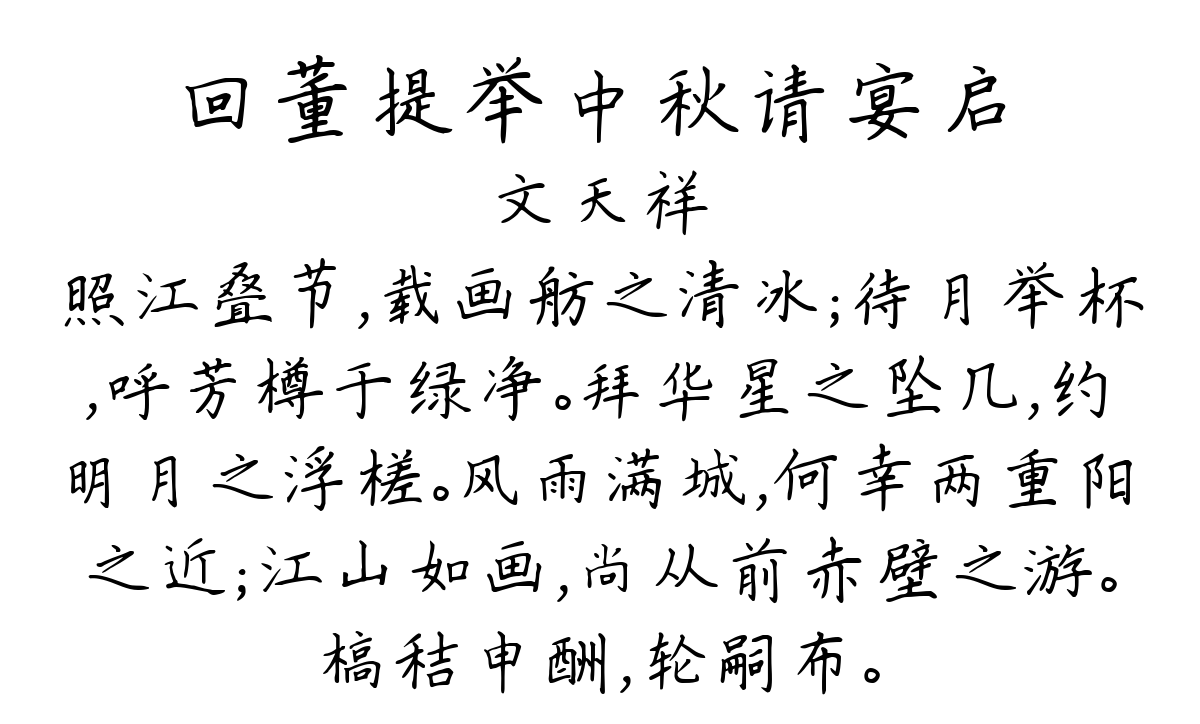 回董提举中秋请宴启
文天祥
照江叠节,载画舫之清冰;待月举杯
,呼芳樽于绿净。拜华星之坠几,约
明月之浮槎。风雨满城,何幸两重阳
之近;江山如画,尚从前赤壁之游。
槁秸申酬,轮嗣布。